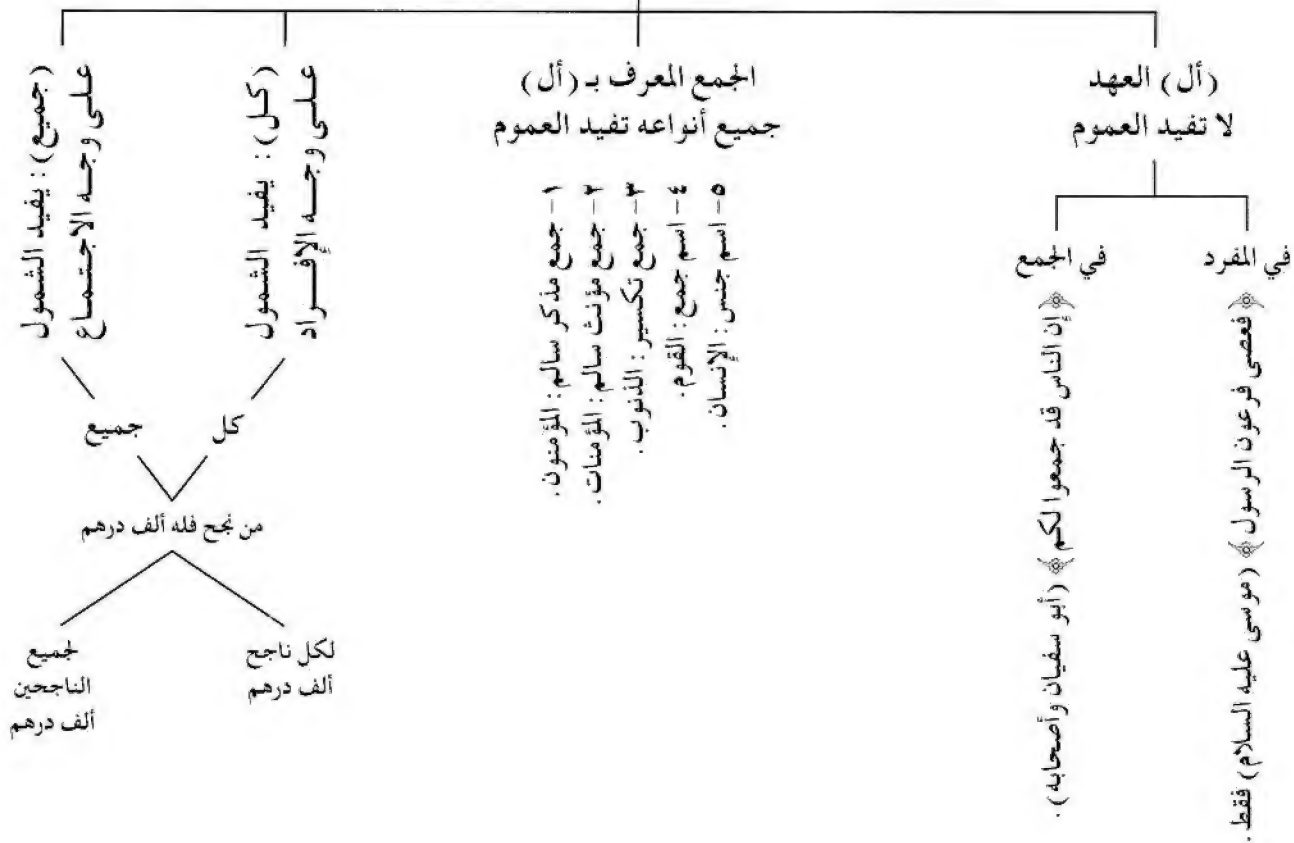 (أل) العهد
لا تفيد العموم
في المفرد
﴿فعصى فرعون الرسول﴾ (موسى عليه السلام) فقط.
في الجمع
﴿إن الناس قد جمعوا لكم﴾ (أبو سفيان وأصحابه).
الجمع المعرف بـ (أل)
جميع أنواعه تفيد العموم
١- جمع مذكر سالم: المؤمنون.
٢- جمع مؤنث سالم: المؤمنات.
٣- جمع تكسير: الذنوب.
٤- اسم جمع: القوم.
٥- اسم جنس: الإنسان.
(كل): يفيد الشمول
على وجه الإفراد
(جميع): يفيد الشمول
على وجه الاجتماع
كل
جميع
من نجح فله ألف درهم
لكل ناجح
ألف درهم
لجميع
الناجحين
ألف درهم